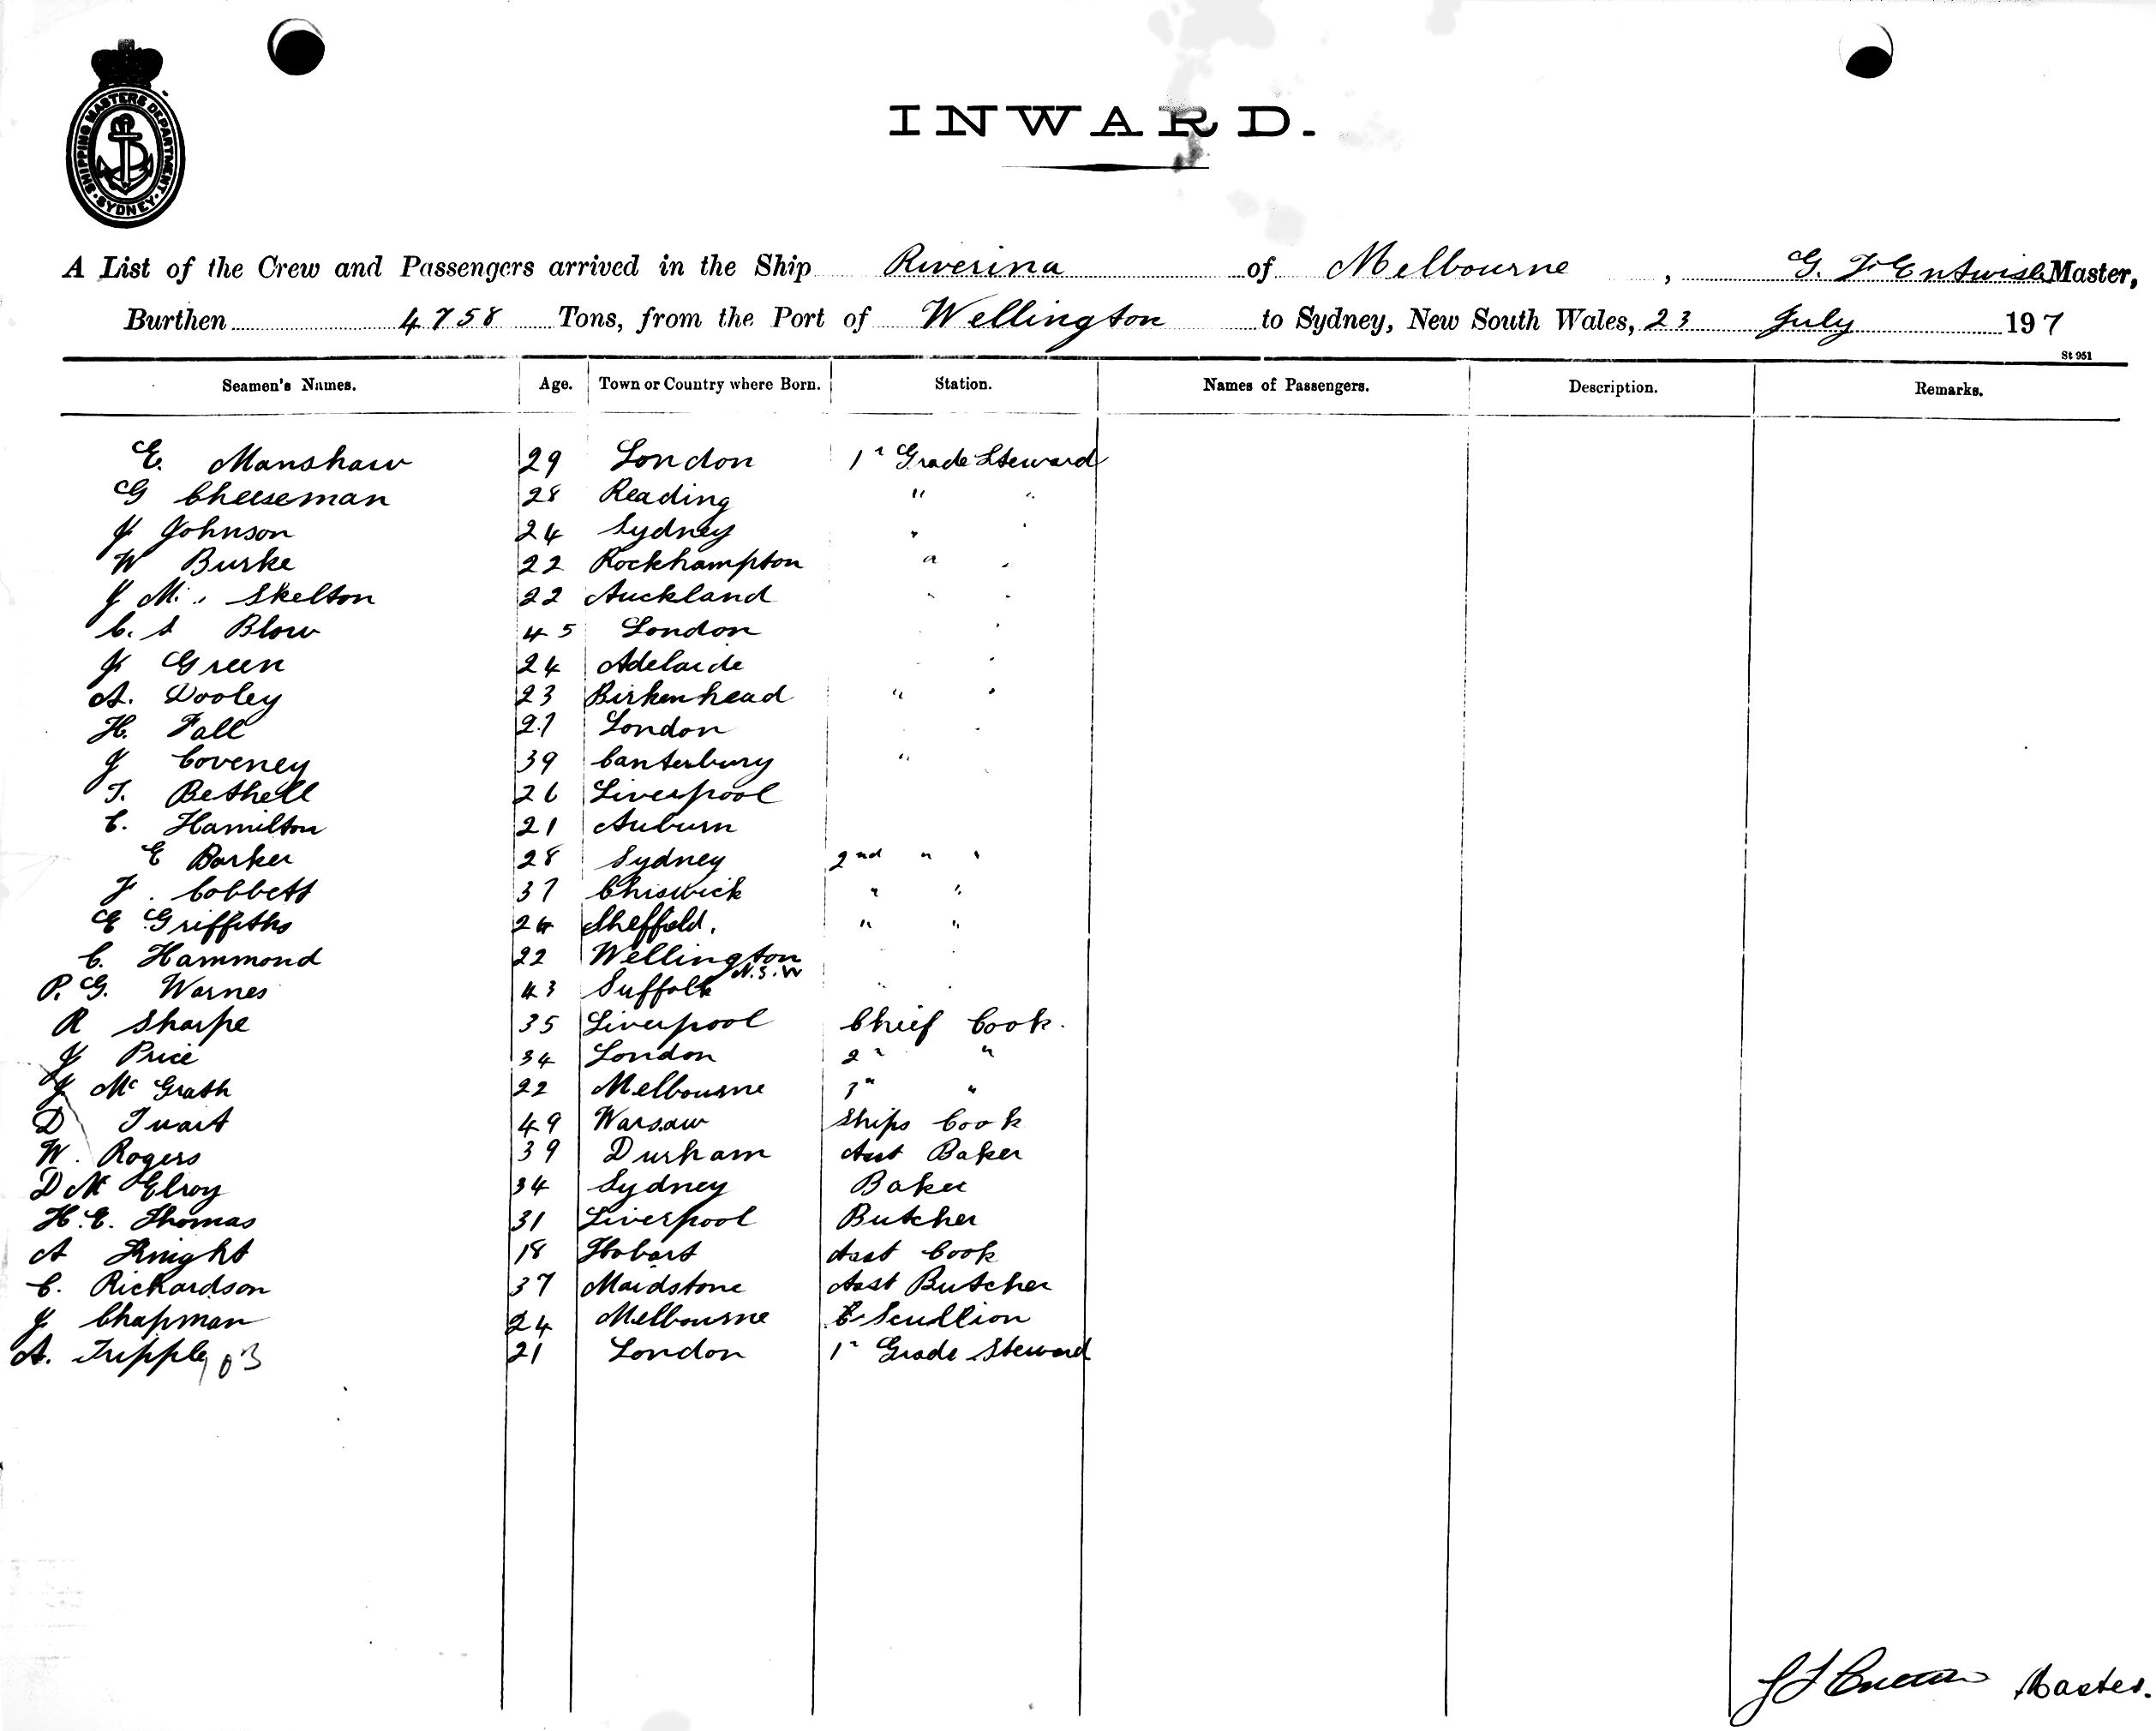 SHIPPING MASTERS DEPARTMENT
SYDNEY
INWARD.
A List of the Crew and Passengers arrived in the Ship Riverina of Melbourne, G. F Entwisle Master,
Burthen 4758 Tons, from the Port of Wellington to Sydney, New South Wales, 23 July 197
St 951
Seamen's Names. Age. Town or Country where Born. Station. Names of Passengers. Description. Remarks.
E. Manshaw 29 London 1" Grade Steward
G Cheeseman 28 Reading " "
J Johnson 24 Sydney " "
W Burke 22 Rockhampton " "
J M. Skelton 22 Auckland " "
C. S Blow 45 London "
J Green 24 Adelaide "
A. Dooley 23 Birkenhead " "
H. Fall 27 London "
J Coveney 39 Canterbury " "
T. Bethell 26 Liverpool
C. Hamilton 21 Auburn
E Barker 28 Sydney 2nd " "
F. Cobbett 37 Chiswick " "
E Griffiths 24 Sheffield. " "
C. Hammond 22 Wellington N.S.W
P. G. Warnes 43 Suffolk " "
R Sharpe 35 Liverpool Chief Cook.
J Price 34 London 2" "
J Mc Grath 22 Melbourne 3" "
D Tuart 49 Warsaw Ships Cook
W. Rogers 39 Durham Asst Baker
D Mc Elroy 34 Sydney Baker
H. E. Thomas 31 Liverpool Butcher
A Knight 18 Hobart Asst Cook
C. Richardson 37 Maidstone Asst Butcher
J Chapman 24 Melbourne Scullion
A. Tripple 21 London 1" Grade Steward
103
Master.